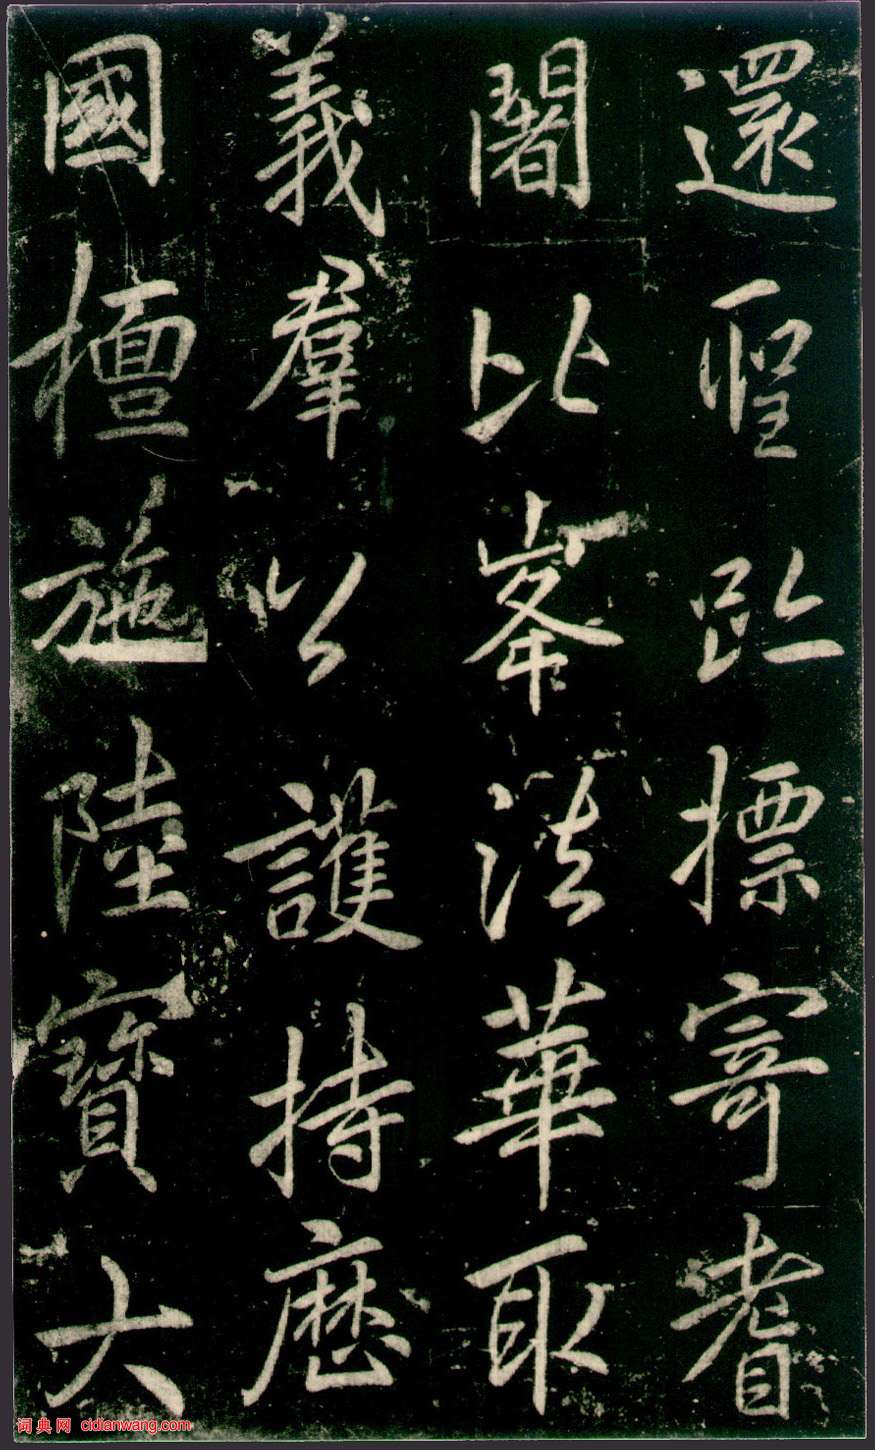 還聖趾標寄耆
闍比峯法華取
義羣公護持歷
國檀施陸寶大
词典网 cidianwang.com